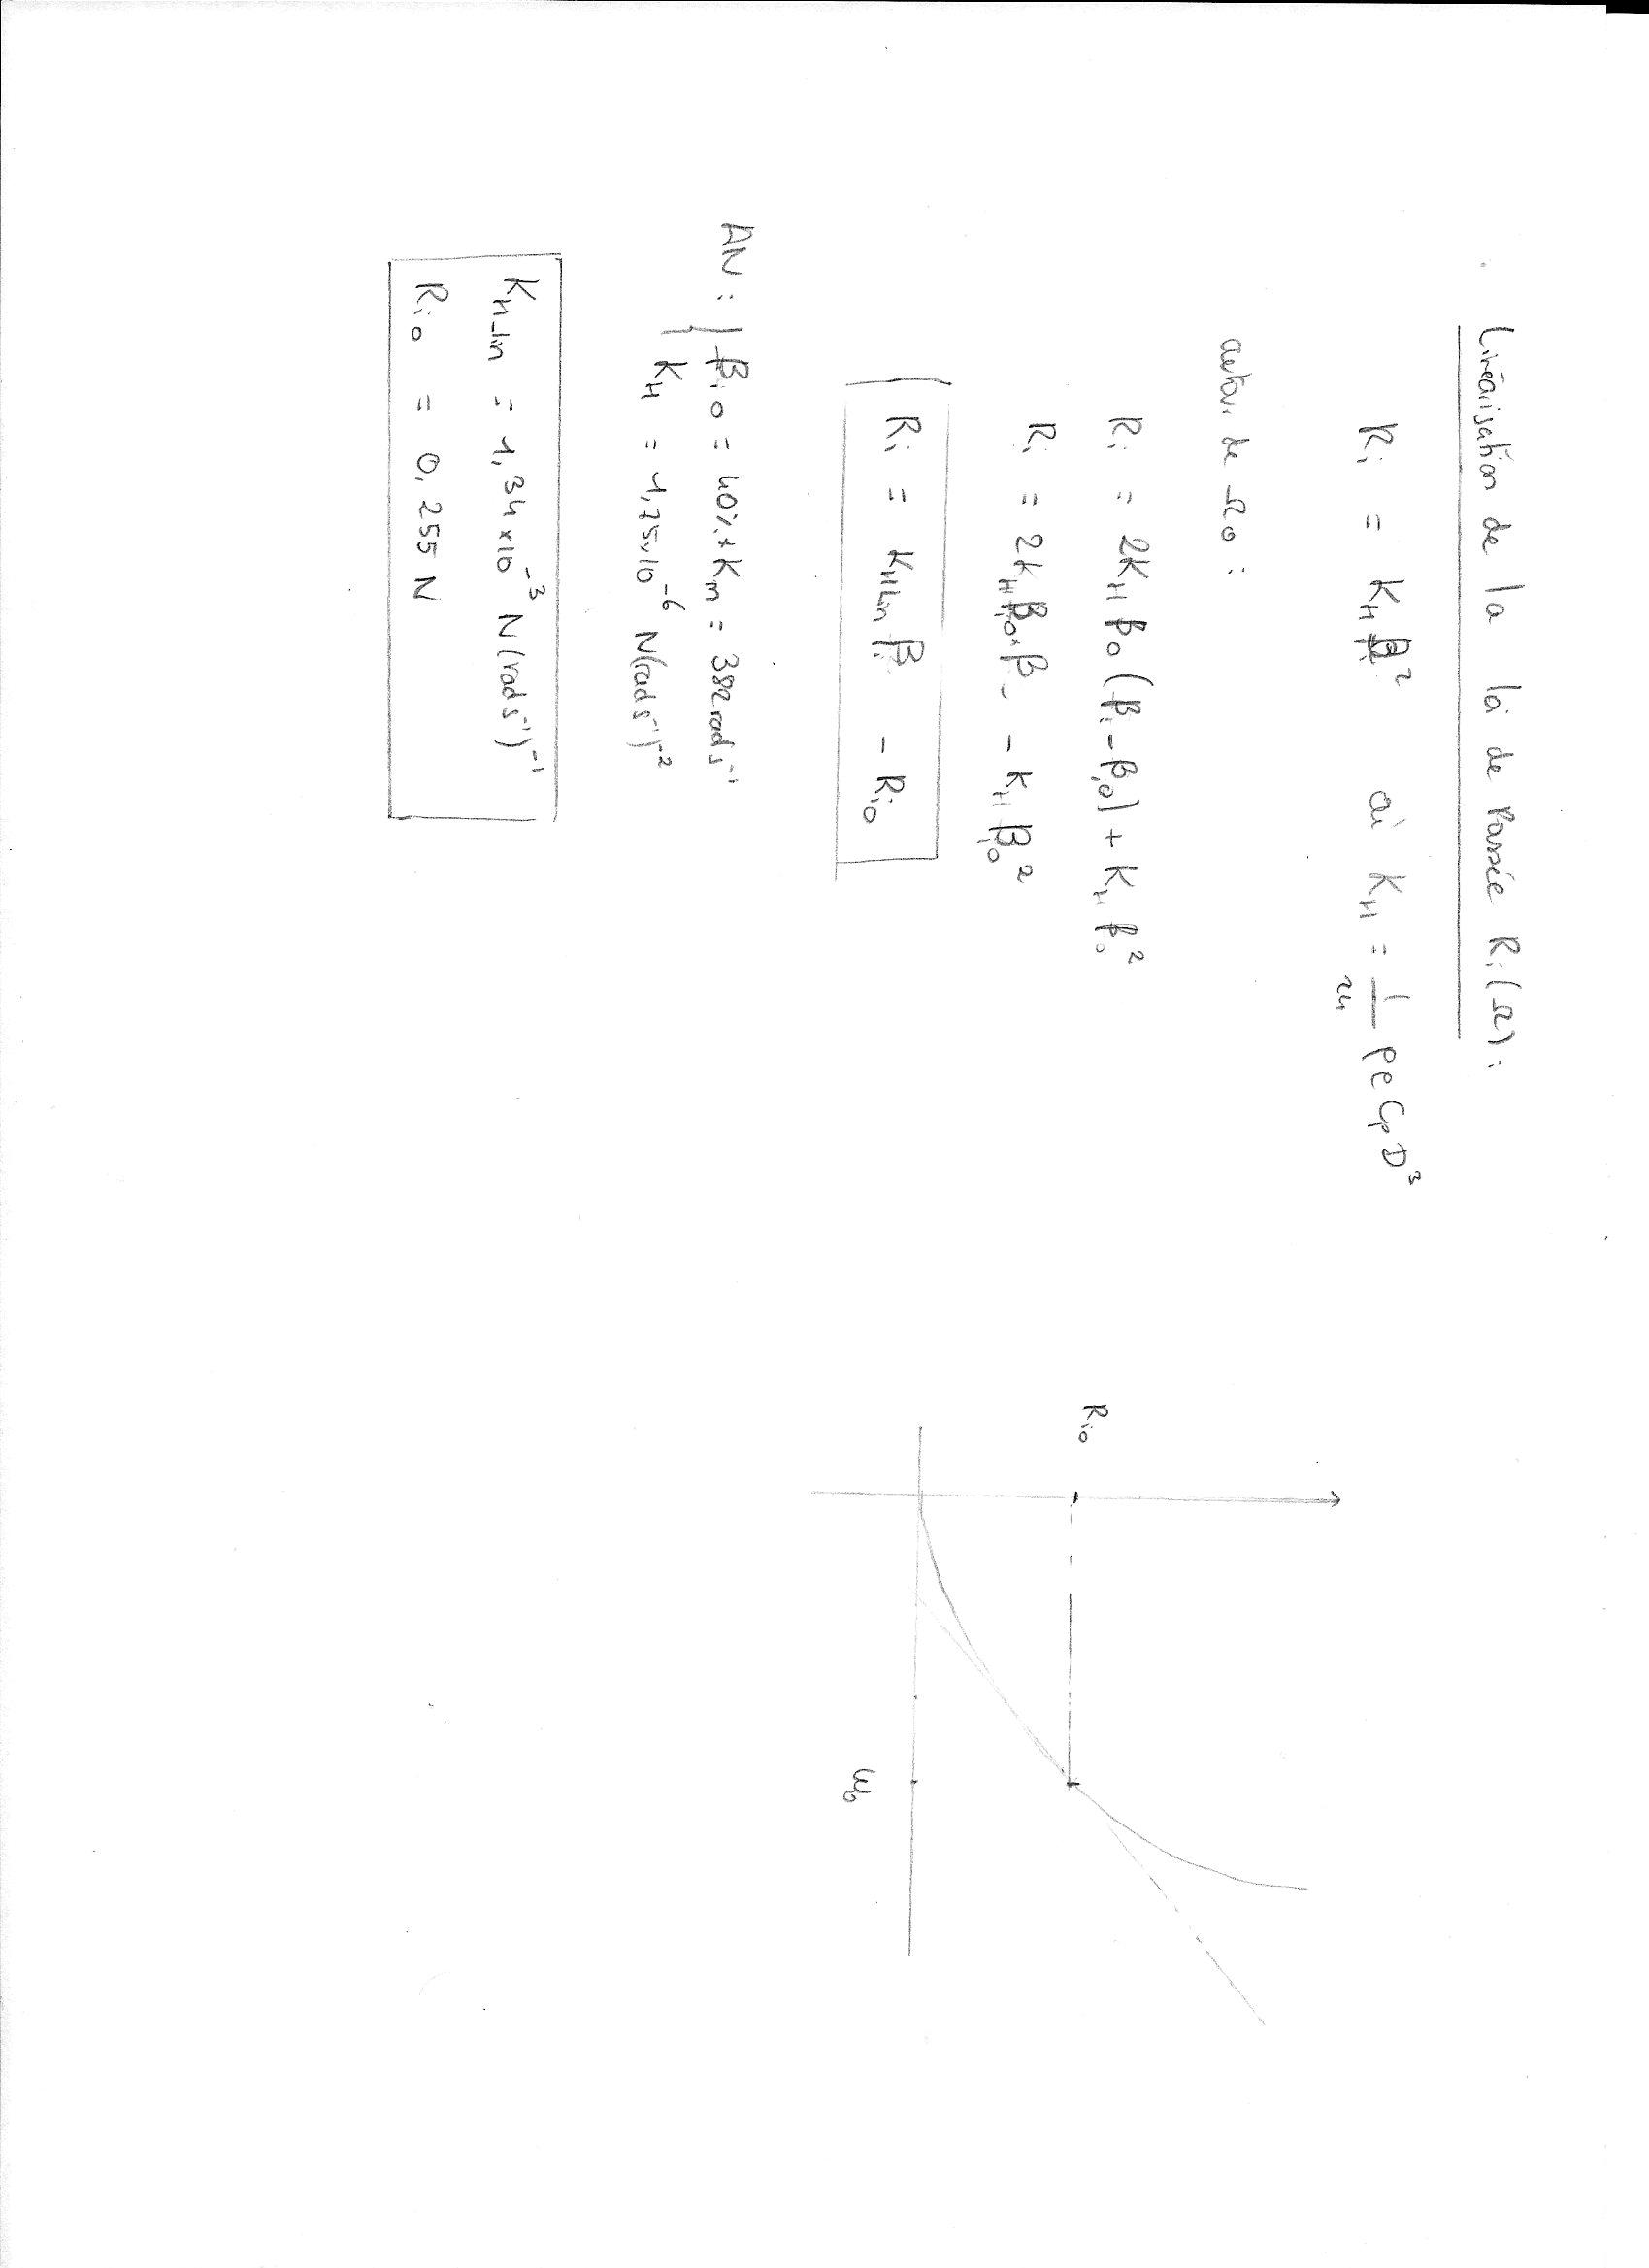 Linéarisation de la loi de Poussée Ri(Ω):
Ri = KH βi² où KH = 1/24 ρe Cp D³
autour de Ω0 :
Ri = 2KH β0 (βi - βi0) + KH β0²
Ri = 2KH βi0 × βi - KH βi0²
Ri = KHLin βi - Ri0
AN : βi0 = 40% * Km = 382 rad s⁻¹
KH = 1,75×10⁻⁶ N(rad s⁻¹)⁻²
KH_lin = 1,34×10⁻³ N(rad s⁻¹)⁻¹
Ri0 = 0,255 N
Ri0
ω0